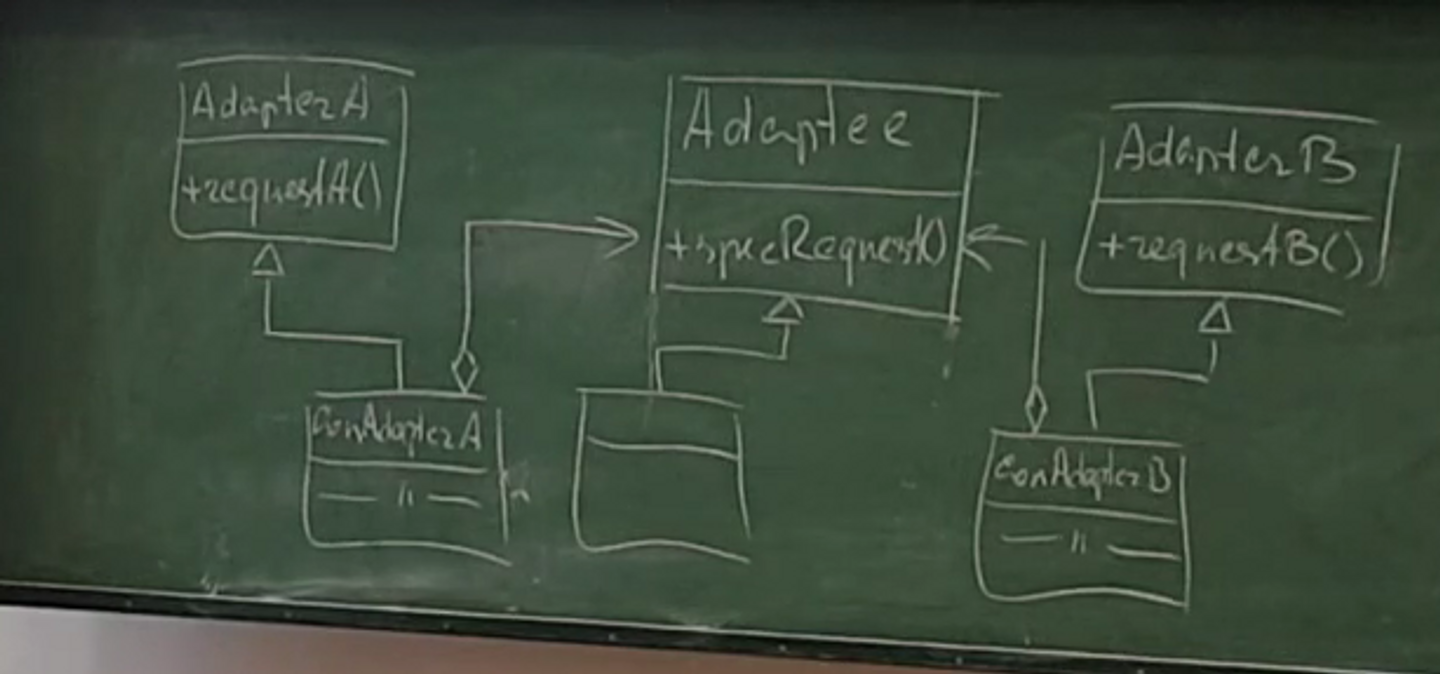 AdapterA
+requestA()
Adaptee
+specRequest()
AdapterB
+requestB()
ConAdapterA
— " —
ConAdapterB
— " —